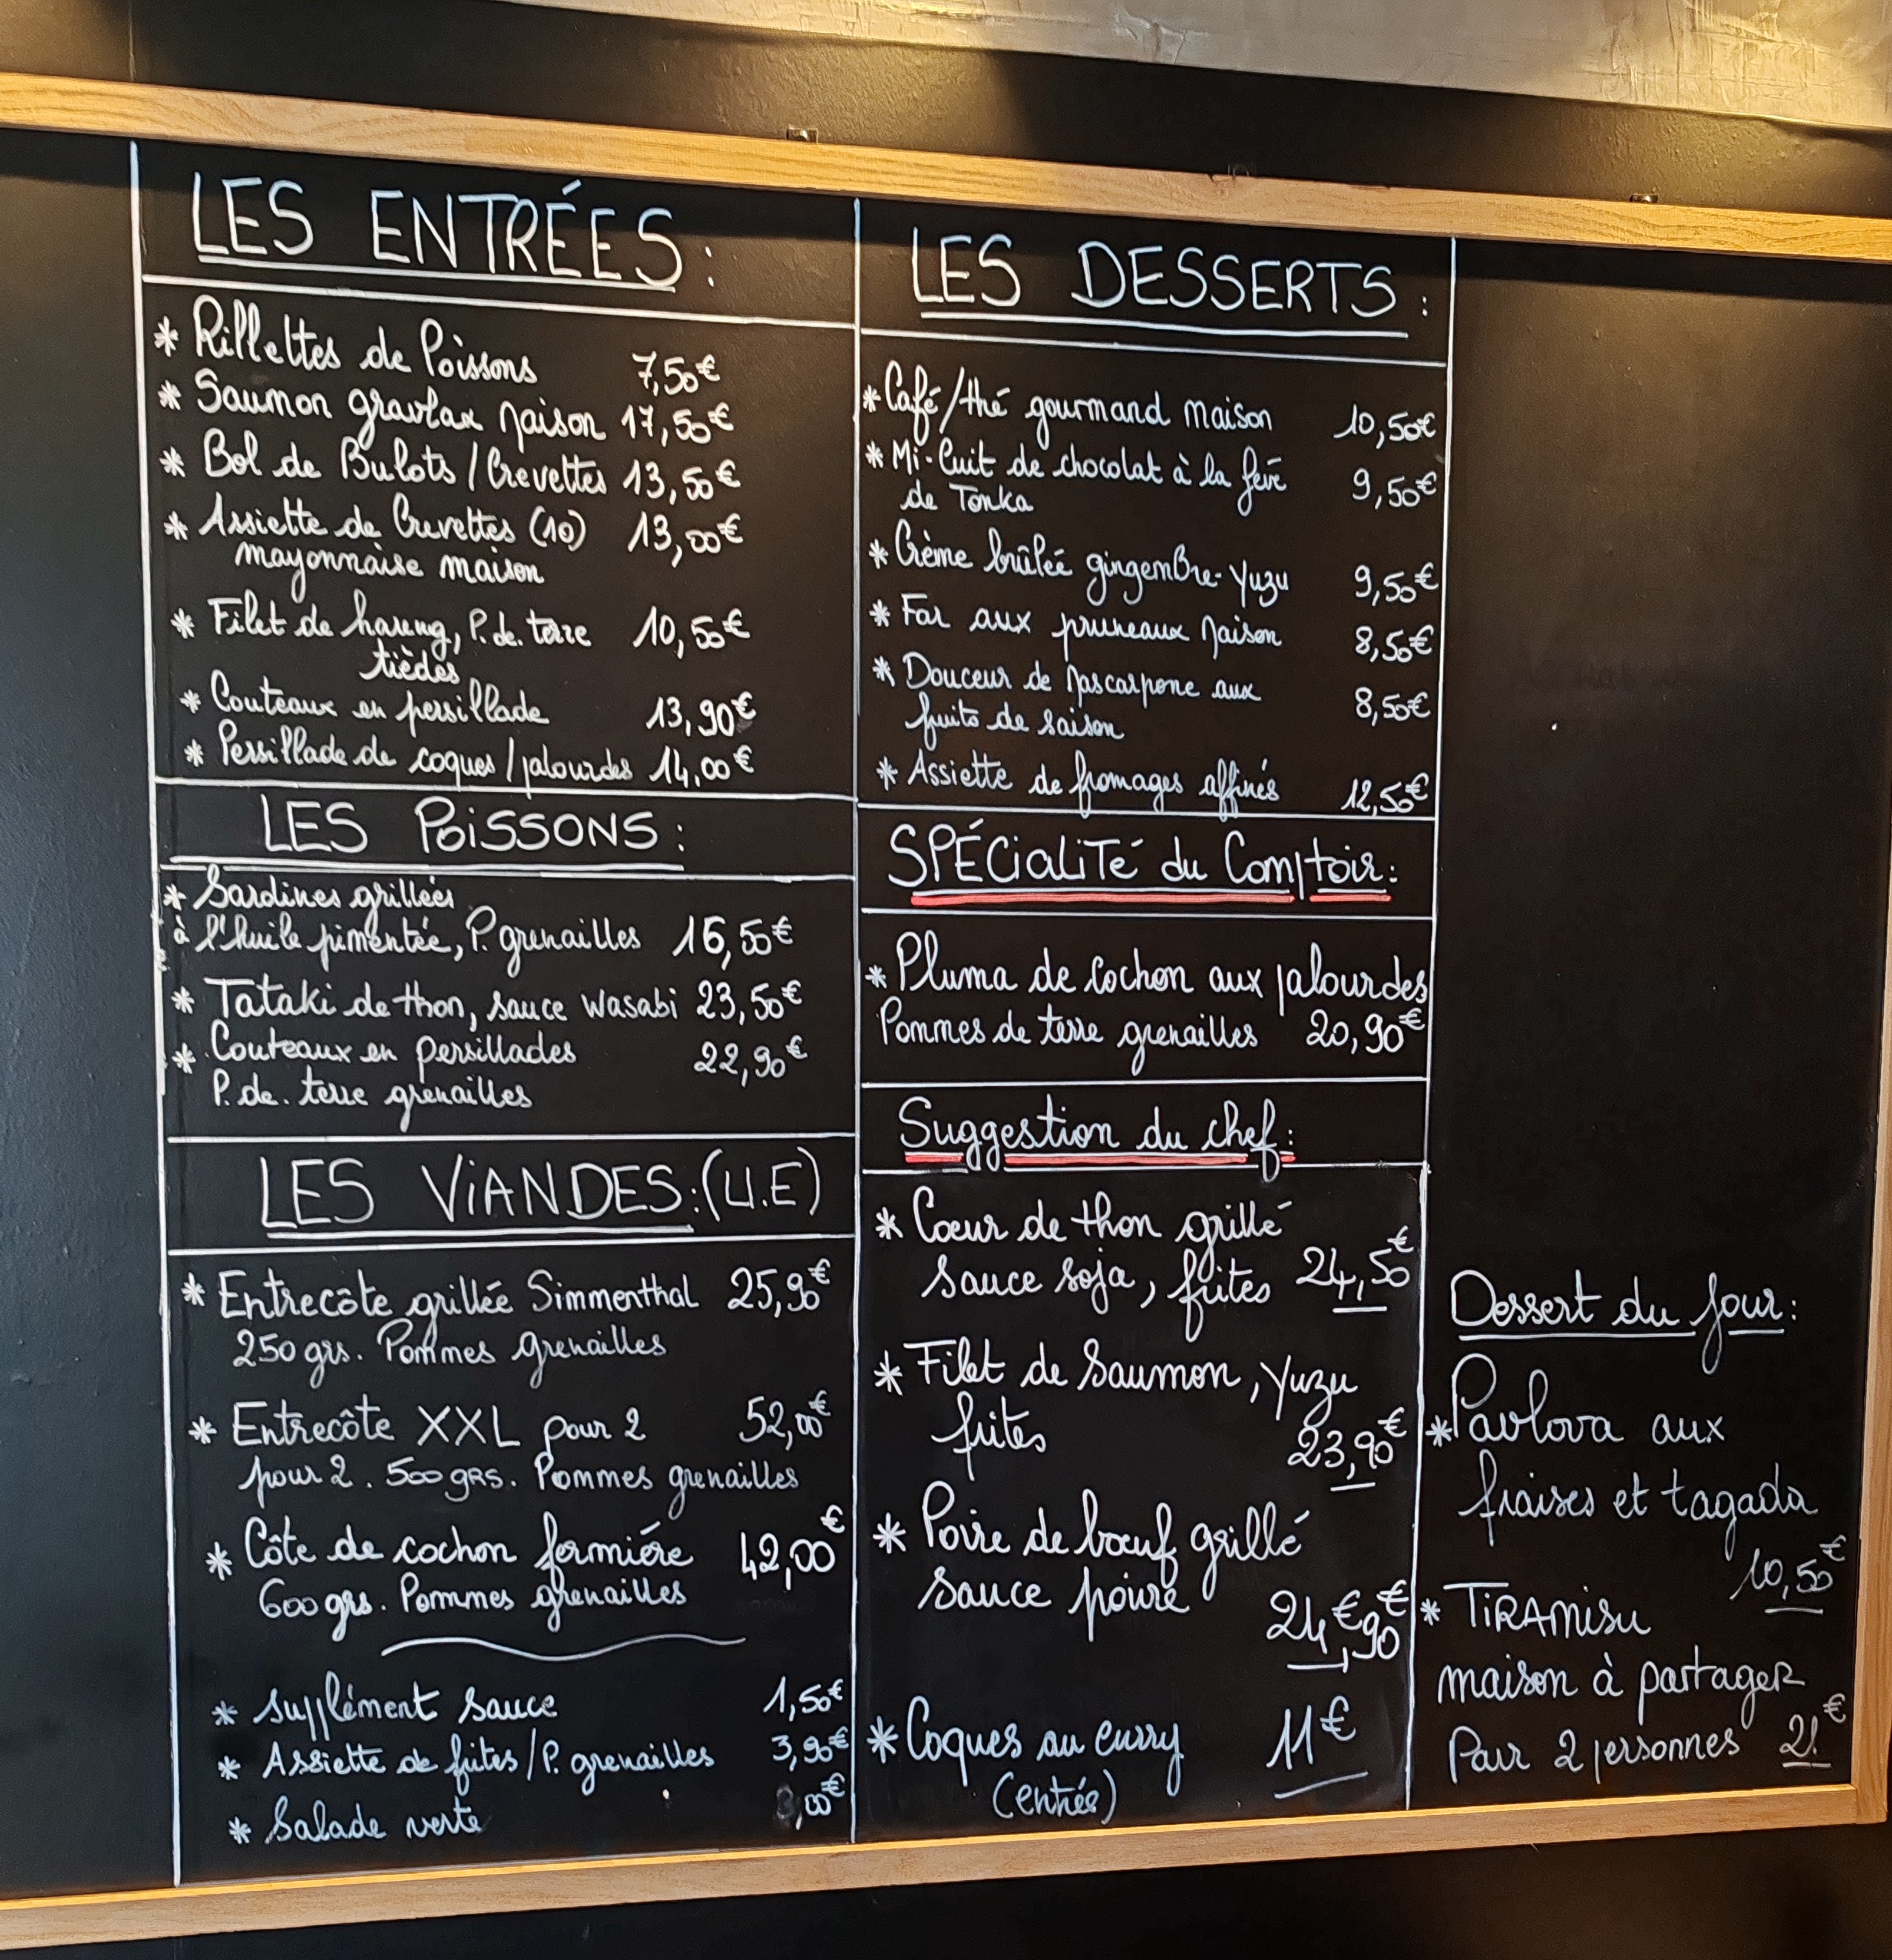 LES ENTRÉES :
* Rillettes de Poissons 7,50€
* Saumon gravlax Maison 17,50€
* Bol de Bulots / Crevettes 13,50€
* Assiette de Crevettes (10) 13,00€
mayonnaise maison
* Filet de hareng, P. de. terre 10,50€
tièdes
* Couteaux en persillade 13,90€
* Persillade de coques / palourdes 14,00€
LES POISSONS :
* Sardines grillées
à l'huile pimentée, P. grenailles 16,50€
* Tataki de thon, sauce wasabi 23,50€
* Couteaux en persillades 22,90€
P. de. terre grenailles
LES VIANDES : (U.E)
* Entrecôte grillée Simmenthal 25,90€
250 grs. Pommes grenailles
* Entrecôte XXL pour 2 52,00€
pour 2. 500 GRS. Pommes grenailles
* Côte de cochon fermiére 42,00€
600 grs. Pommes grenailles
* supplément sauce 1,50€
* Assiette de frites / P. grenailles 3,90€
* Salade verte ,00€
LES DESSERTS :
* Café/thé gourmand maison 10,50€
* Mi-Cuit de chocolat à la fève 9,50€
de Tonka
* Crème brûlée gingembre-Yuzu 9,50€
* Far aux pruneaux Maison 8,50€
* Douceur de Mascarpone aux 8,50€
fruits de saison
* Assiette de fromages affinés 12,50€
SPÉCIALITÉ du Comptoir :
* Pluma de cochon aux palourdes
Pommes de terre grenailles 20,90€
Suggestion du chef :
* Cœur de thon grillé
sauce soja, frites 24,50€
* Filet de Saumon, Yuzu
frites 23,90€
* Poire de bœuf grillé
sauce poivre 24,€90€
* Coques au curry 11€
(entrée)
Dessert du Jour :
* Pavlova aux
fraises et tagada
10,50€
* TIRAMISU
maison à partager
Pour 2 personnes 21€